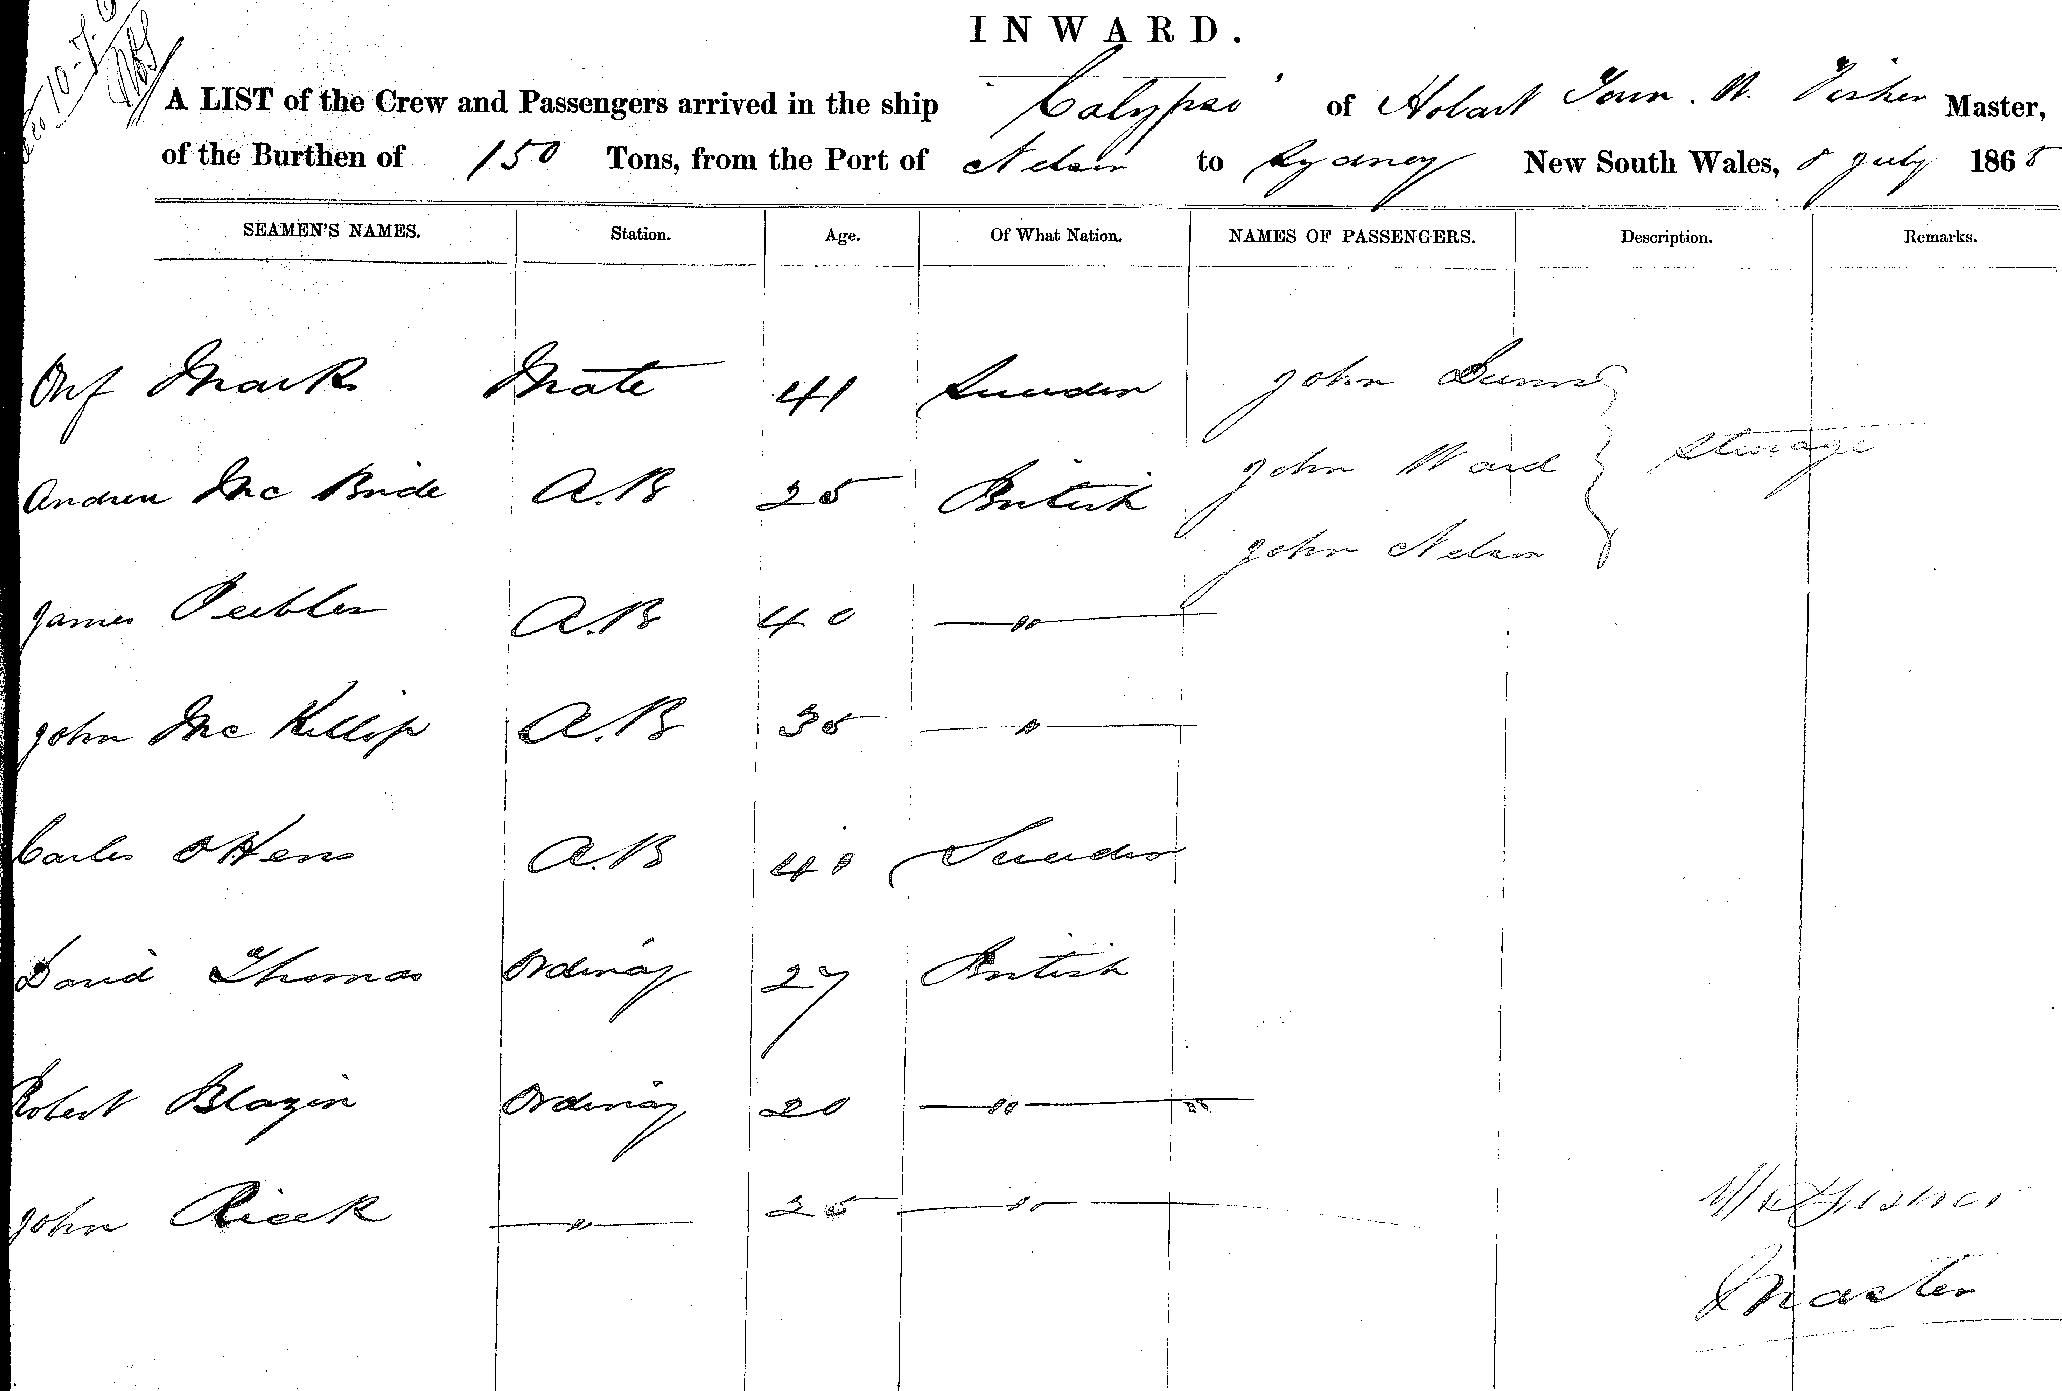 INWARD.
A LIST of the Crew and Passengers arrived in the ship "Calypso" of Hobart Town. W. Fisher Master,
of the Burthen of 150 Tons, from the Port of Nelson to Sydney New South Wales, 8 July 1868
SEAMEN'S NAMES. Station. Age. Of What Nation. NAMES OF PASSENGERS. Description. Remarks.
Mark Mate 41 Sweden John Dunn
John Ward Sterage
Andrew Mc Bride A.B 25 British
John Nelson
James Peebles A.B 40 — " —
John Mc Killip A.B 35 — " —
Carles A.B 40 Sweden
David Thomas Ordinay 27 British
Robert Blazin Ordinay 20 — " — "
John Rieek — " — 25 — " —
W Fisher
Master